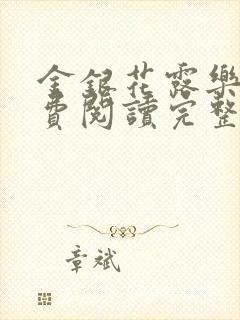 金銀花露樂
費閱讀完整
章斌